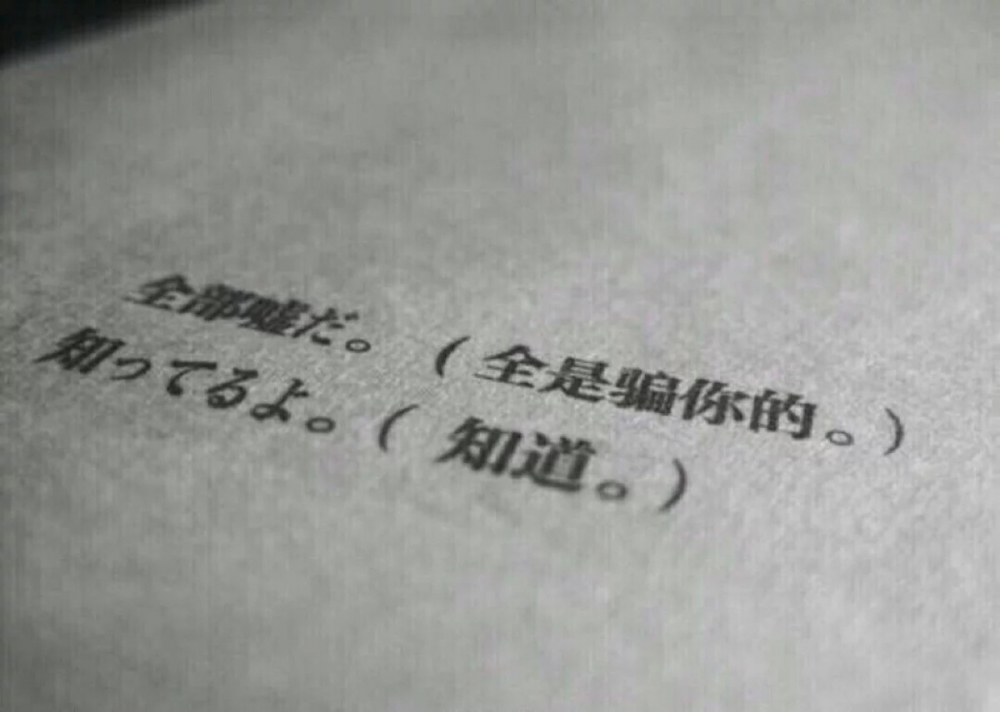 全部嘘だ。（全是骗你的。）
知ってるよ。（ 知道。）